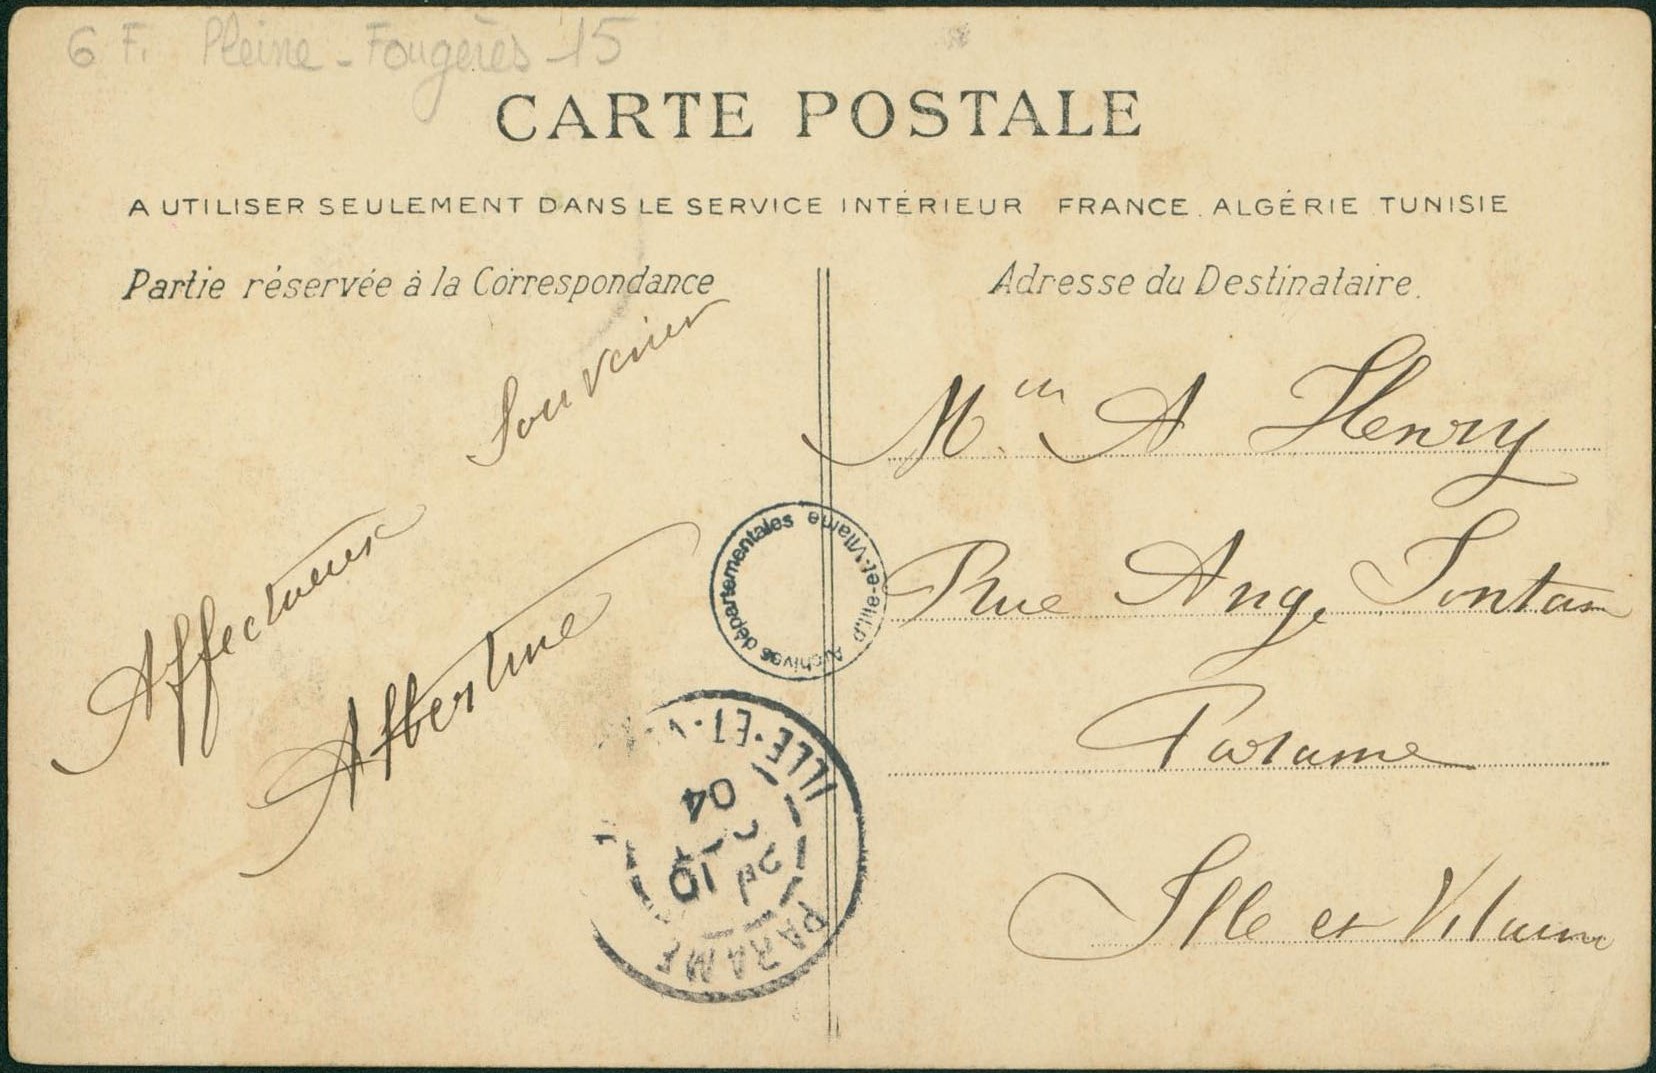 6 F. Pleine-Fougères 15
CARTE POSTALE
A UTILISER SEULEMENT DANS LE SERVICE INTÉRIEUR FRANCE. ALGÉRIE TUNISIE
Partie réservée à la Correspondance
Adresse du Destinataire.
Souvenier
Affectueux
Albertine
A Henry
Rue Ange Fontan
Parame
Ille et Vilaine
Archives départementales d'Ille-et-Vilaine
PARAME
ILLE-ET-V
10
04